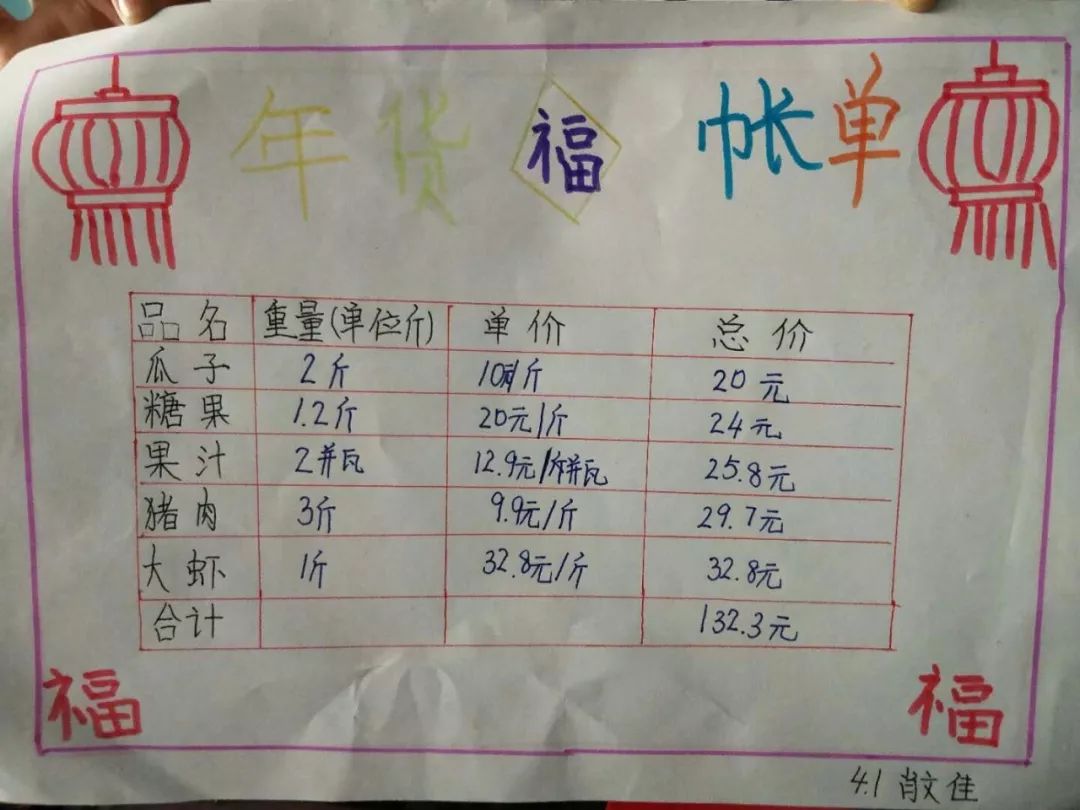 年货 福 帐单
品名 重量(单位斤) 单价 总价
瓜子 2斤 10元/斤 20元
糖果 1.2斤 20元/斤 24元
果汁 2瓶 12.9元/瓶 25.8元
猪肉 3斤 9.9元/斤 29.7元
大虾 1斤 32.8元/斤 32.8元
合计 132.3元
福 福
4.1 肖文佳